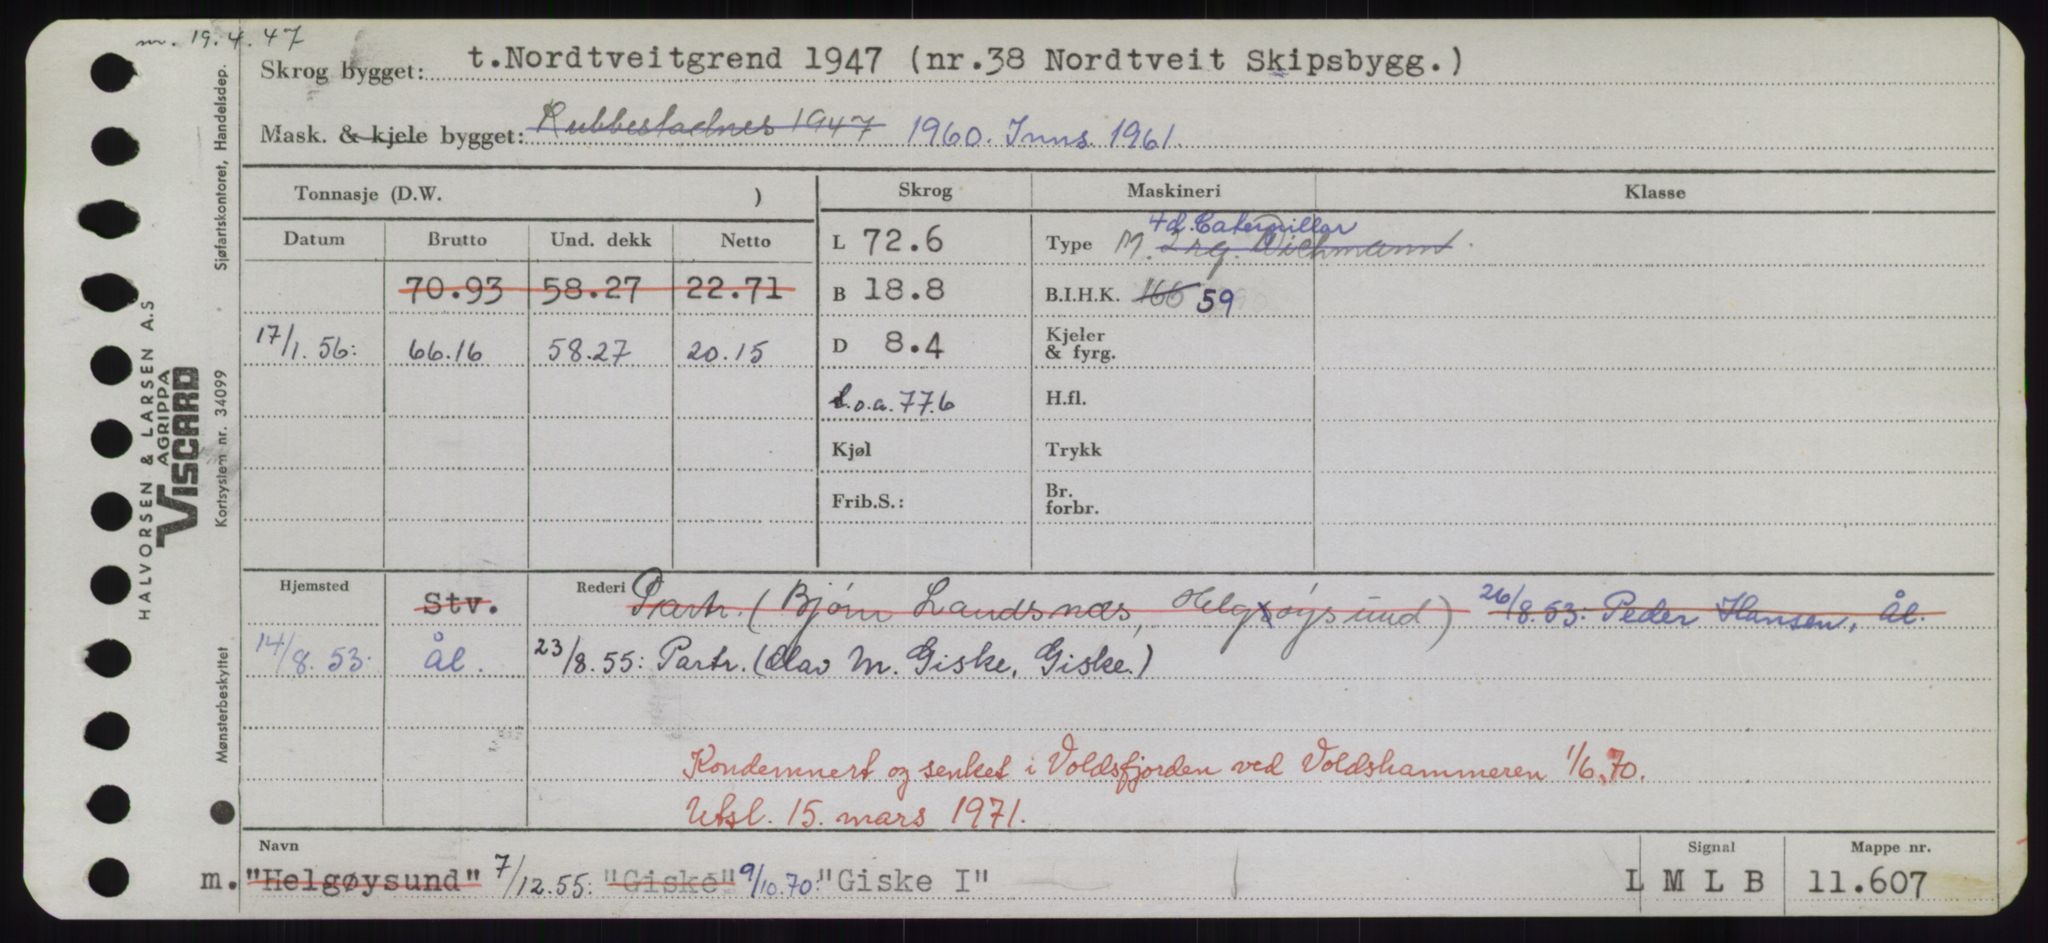 m. 19.4.47
Skrog bygget: t.Nordtveitgrend 1947 (nr.38 Nordtveit Skipsbygg.)
Mask. & kjele bygget: Rubbestadnes 1947 1960. Inns. 1961.
Tonnasje (D.W. ) Skrog Maskineri Klasse
Datum Brutto Und. dekk Netto L 72.6 Type M. 2 rg. Wichmann 4 d. Caterpillar
70.93 58.27 22.71 B 18.8 B.I.H.K. 166 59
17/1.56: 66.16 58.27 20.15 D 8.4 Kjeler & fyrg.
L.o.a. 77.6 H.fl.
Kjøl Trykk
Frib.S.: Br. forbr.
Hjemsted Stv. Rederi Partr. (Bjørn Landsnæs, Helgøysund) 26/8.53: Peder Hansen, Ål.
14/8.53: Ål. 23/8.55: Partr. (Olav M. Giske, Giske.)
Kondemnert og senket i Voldsfjorden ved Voldshammeren 1/6.70.
Utsl. 15. mars 1971.
Navn Signal Mappe nr.
m. "Helgøysund" 7/12.55: "Giske" 9/10.70: "Giske I" L M L B 11.607
HALVORSEN & LARSEN A.S
AGRIPPA
VISCARD
Sjøfartskontoret, Handelsdep.
Kortsystem nr. 34099
Mønsterbeskyttet